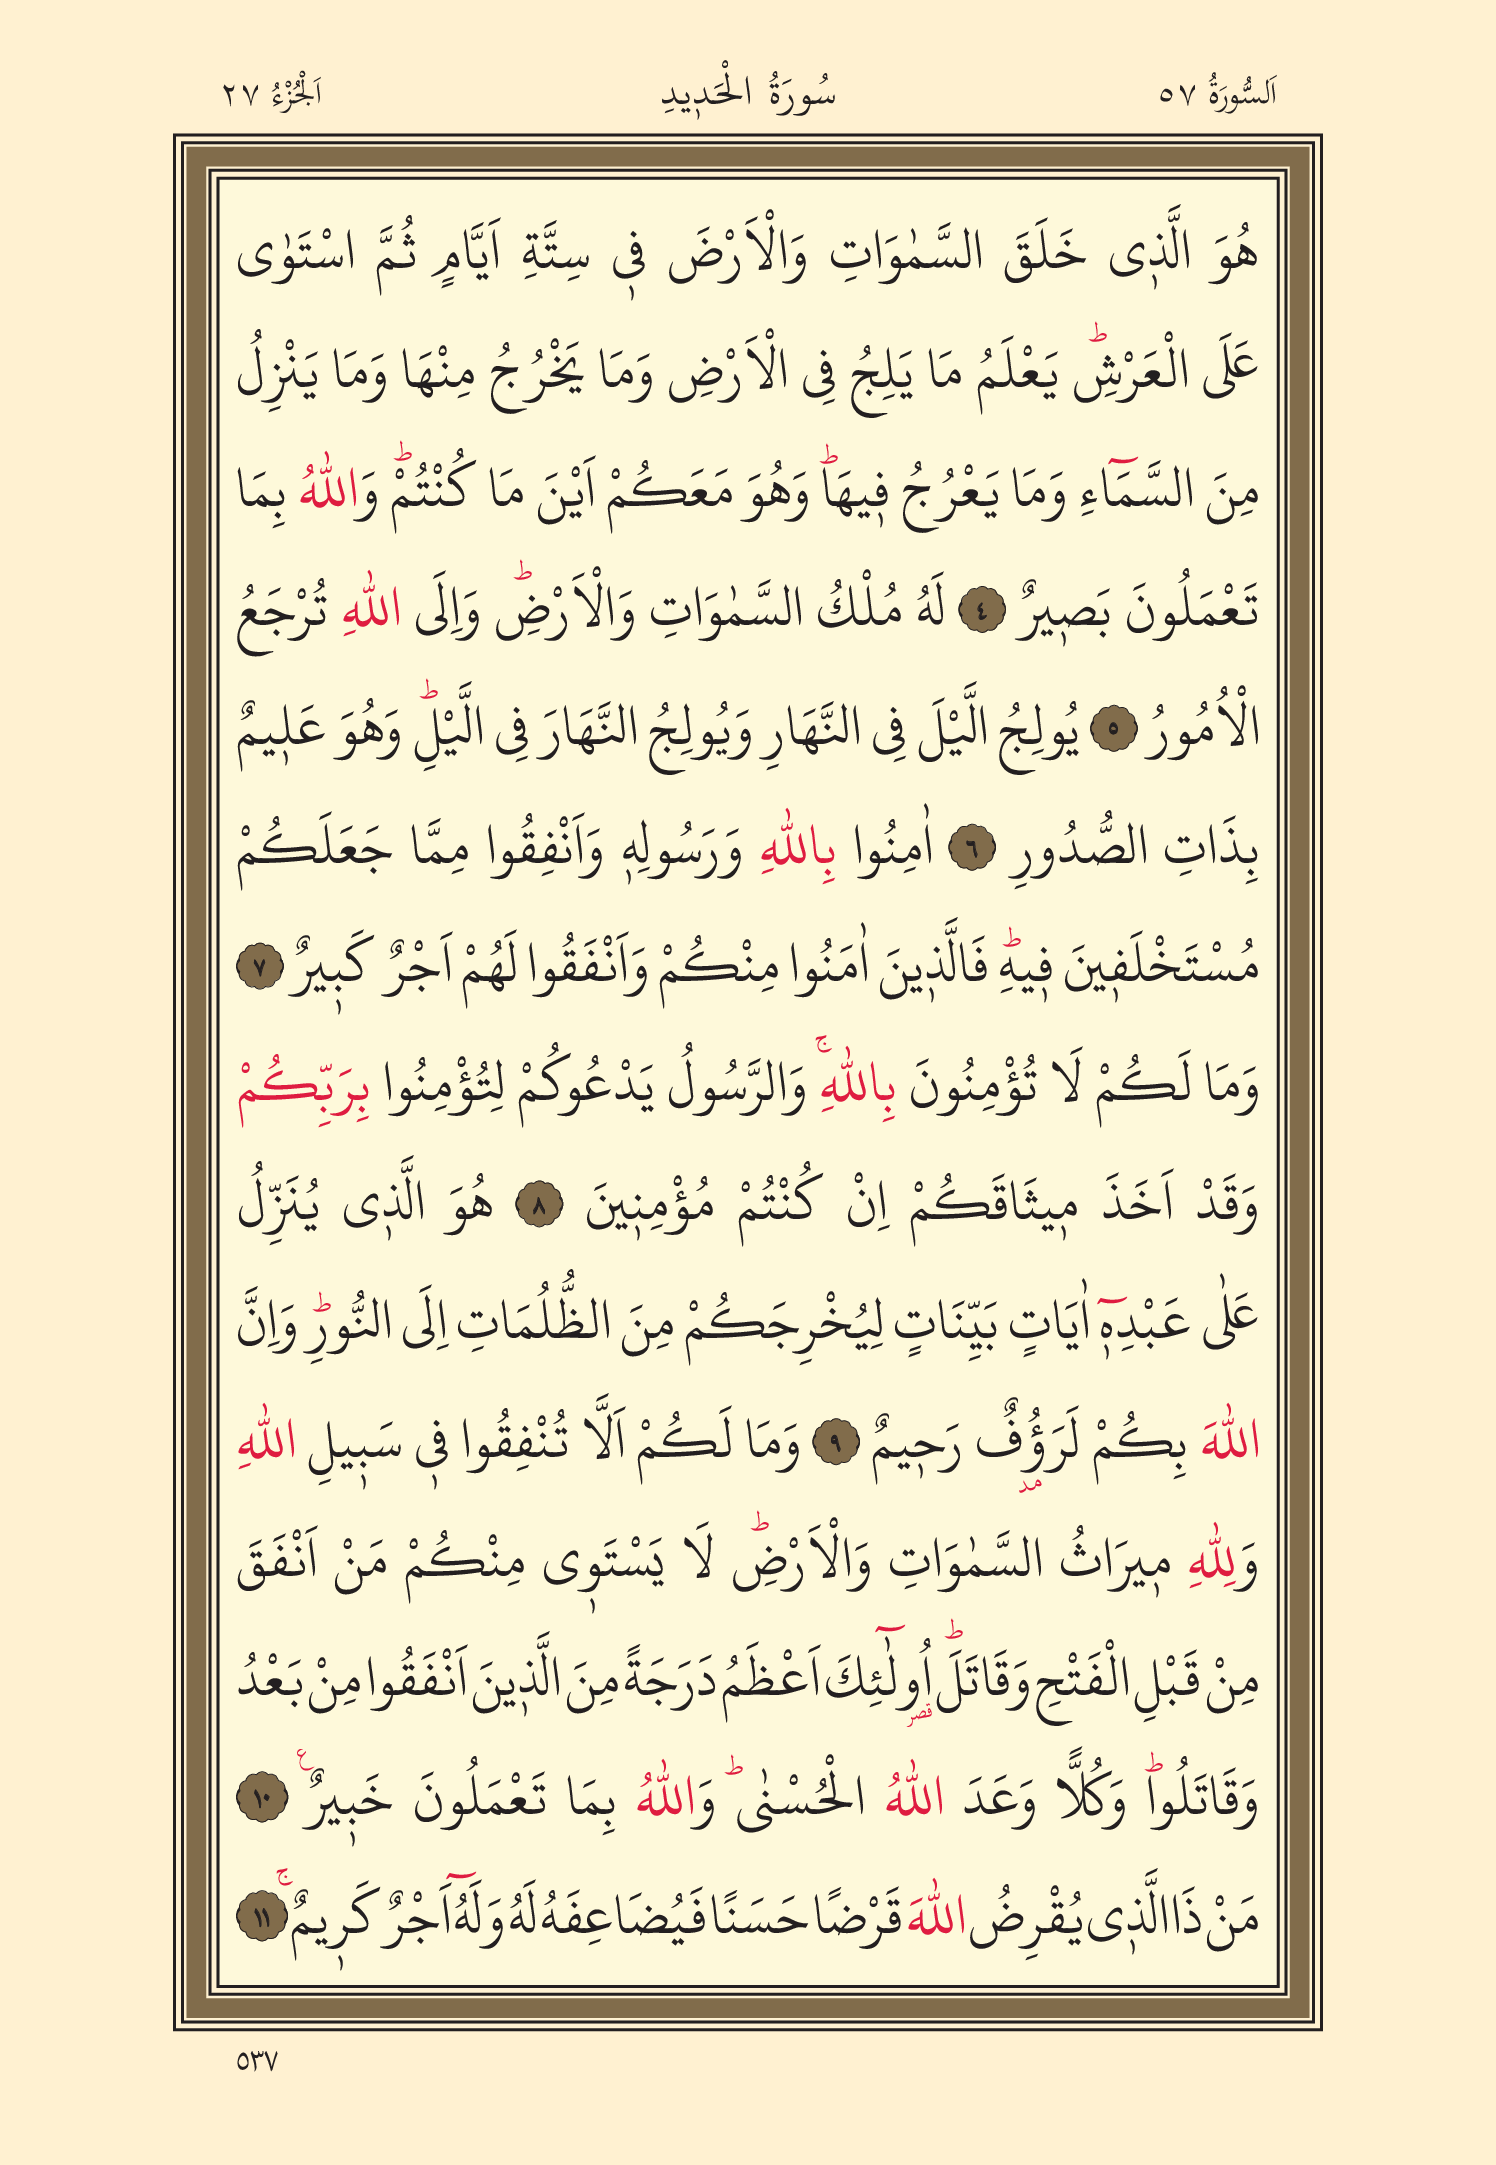 اَلسُّورَةُ ٥٧ سُورَةُ الْحَدٖيدِ اَلْجُزْءُ ٢٧
هُوَ الَّذٖى خَلَقَ السَّمٰوَاتِ وَالْاَرْضَ فٖى سِتَّةِ اَيَّامٍ ثُمَّ اسْتَوٰى
عَلَى الْعَرْشِؕ يَعْلَمُ مَا يَلِجُ فِى الْاَرْضِ وَمَا يَخْرُجُ مِنْهَا وَمَا يَنْزِلُ
مِنَ السَّمَٓاءِ وَمَا يَعْرُجُ فٖيهَاؕ وَهُوَ مَعَكُمْ اَيْنَ مَا كُنْتُمْؕ وَاللّٰهُ بِمَا
تَعْمَلُونَ بَصٖيرٌ ٤ لَهُ مُلْكُ السَّمٰوَاتِ وَالْاَرْضِؕ وَاِلَى اللّٰهِ تُرْجَعُ
الْاُمُورُ ٥ يُولِجُ الَّيْلَ فِى النَّهَارِ وَيُولِجُ النَّهَارَ فِى الَّيْلِؕ وَهُوَ عَلٖيمٌ
بِذَاتِ الصُّدُورِ ٦ اٰمِنُوا بِاللّٰهِ وَرَسُولِهٖ وَاَنْفِقُوا مِمَّا جَعَلَكُمْ
مُسْتَخْلَفٖينَ فٖيهِؕ فَالَّذٖينَ اٰمَنُوا مِنْكُمْ وَاَنْفَقُوا لَهُمْ اَجْرٌ كَبٖيرٌ ٧
وَمَا لَكُمْ لَا تُؤْمِنُونَ بِاللّٰهِۚ وَالرَّسُولُ يَدْعُوكُمْ لِتُؤْمِنُوا بِرَبِّكُمْ
وَقَدْ اَخَذَ مٖيثَاقَكُمْ اِنْ كُنْتُمْ مُؤْمِنٖينَ ٨ هُوَ الَّذٖى يُنَزِّلُ
عَلٰى عَبْدِهٖٓ اٰيَاتٍ بَيِّنَاتٍ لِيُخْرِجَكُمْ مِنَ الظُّلُمَاتِ اِلَى النُّورِؕ وَاِنَّ
اللّٰهَ بِكُمْ لَرَؤُفٌ رَحٖيمٌ ٩ وَمَا لَكُمْ اَلَّا تُنْفِقُوا فٖى سَبٖيلِ اللّٰهِ
مد
وَلِلّٰهِ مٖيرَاثُ السَّمٰوَاتِ وَالْاَرْضِؕ لَا يَسْتَوٖى مِنْكُمْ مَنْ اَنْفَقَ
مِنْ قَبْلِ الْفَتْحِ وَقَاتَلَؕ اُولٰٓئِكَ اَعْظَمُ دَرَجَةً مِنَ الَّذٖينَ اَنْفَقُوا مِنْ بَعْدُ
قصر
وَقَاتَلُواؕ وَكُلًّا وَعَدَ اللّٰهُ الْحُسْنٰىؕ وَاللّٰهُ بِمَا تَعْمَلُونَ خَبٖيرٌ ع ١٠
مَنْ ذَا الَّذٖى يُقْرِضُ اللّٰهَ قَرْضًا حَسَنًا فَيُضَاعِفَهُ لَهُ وَلَهُٓ اَجْرٌ كَرٖيمٌۚ ١١
٥٣٧